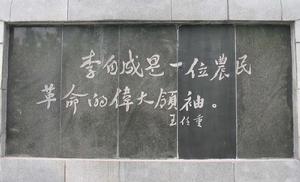 李自成是一位農民
革命的偉大領袖。
王任重